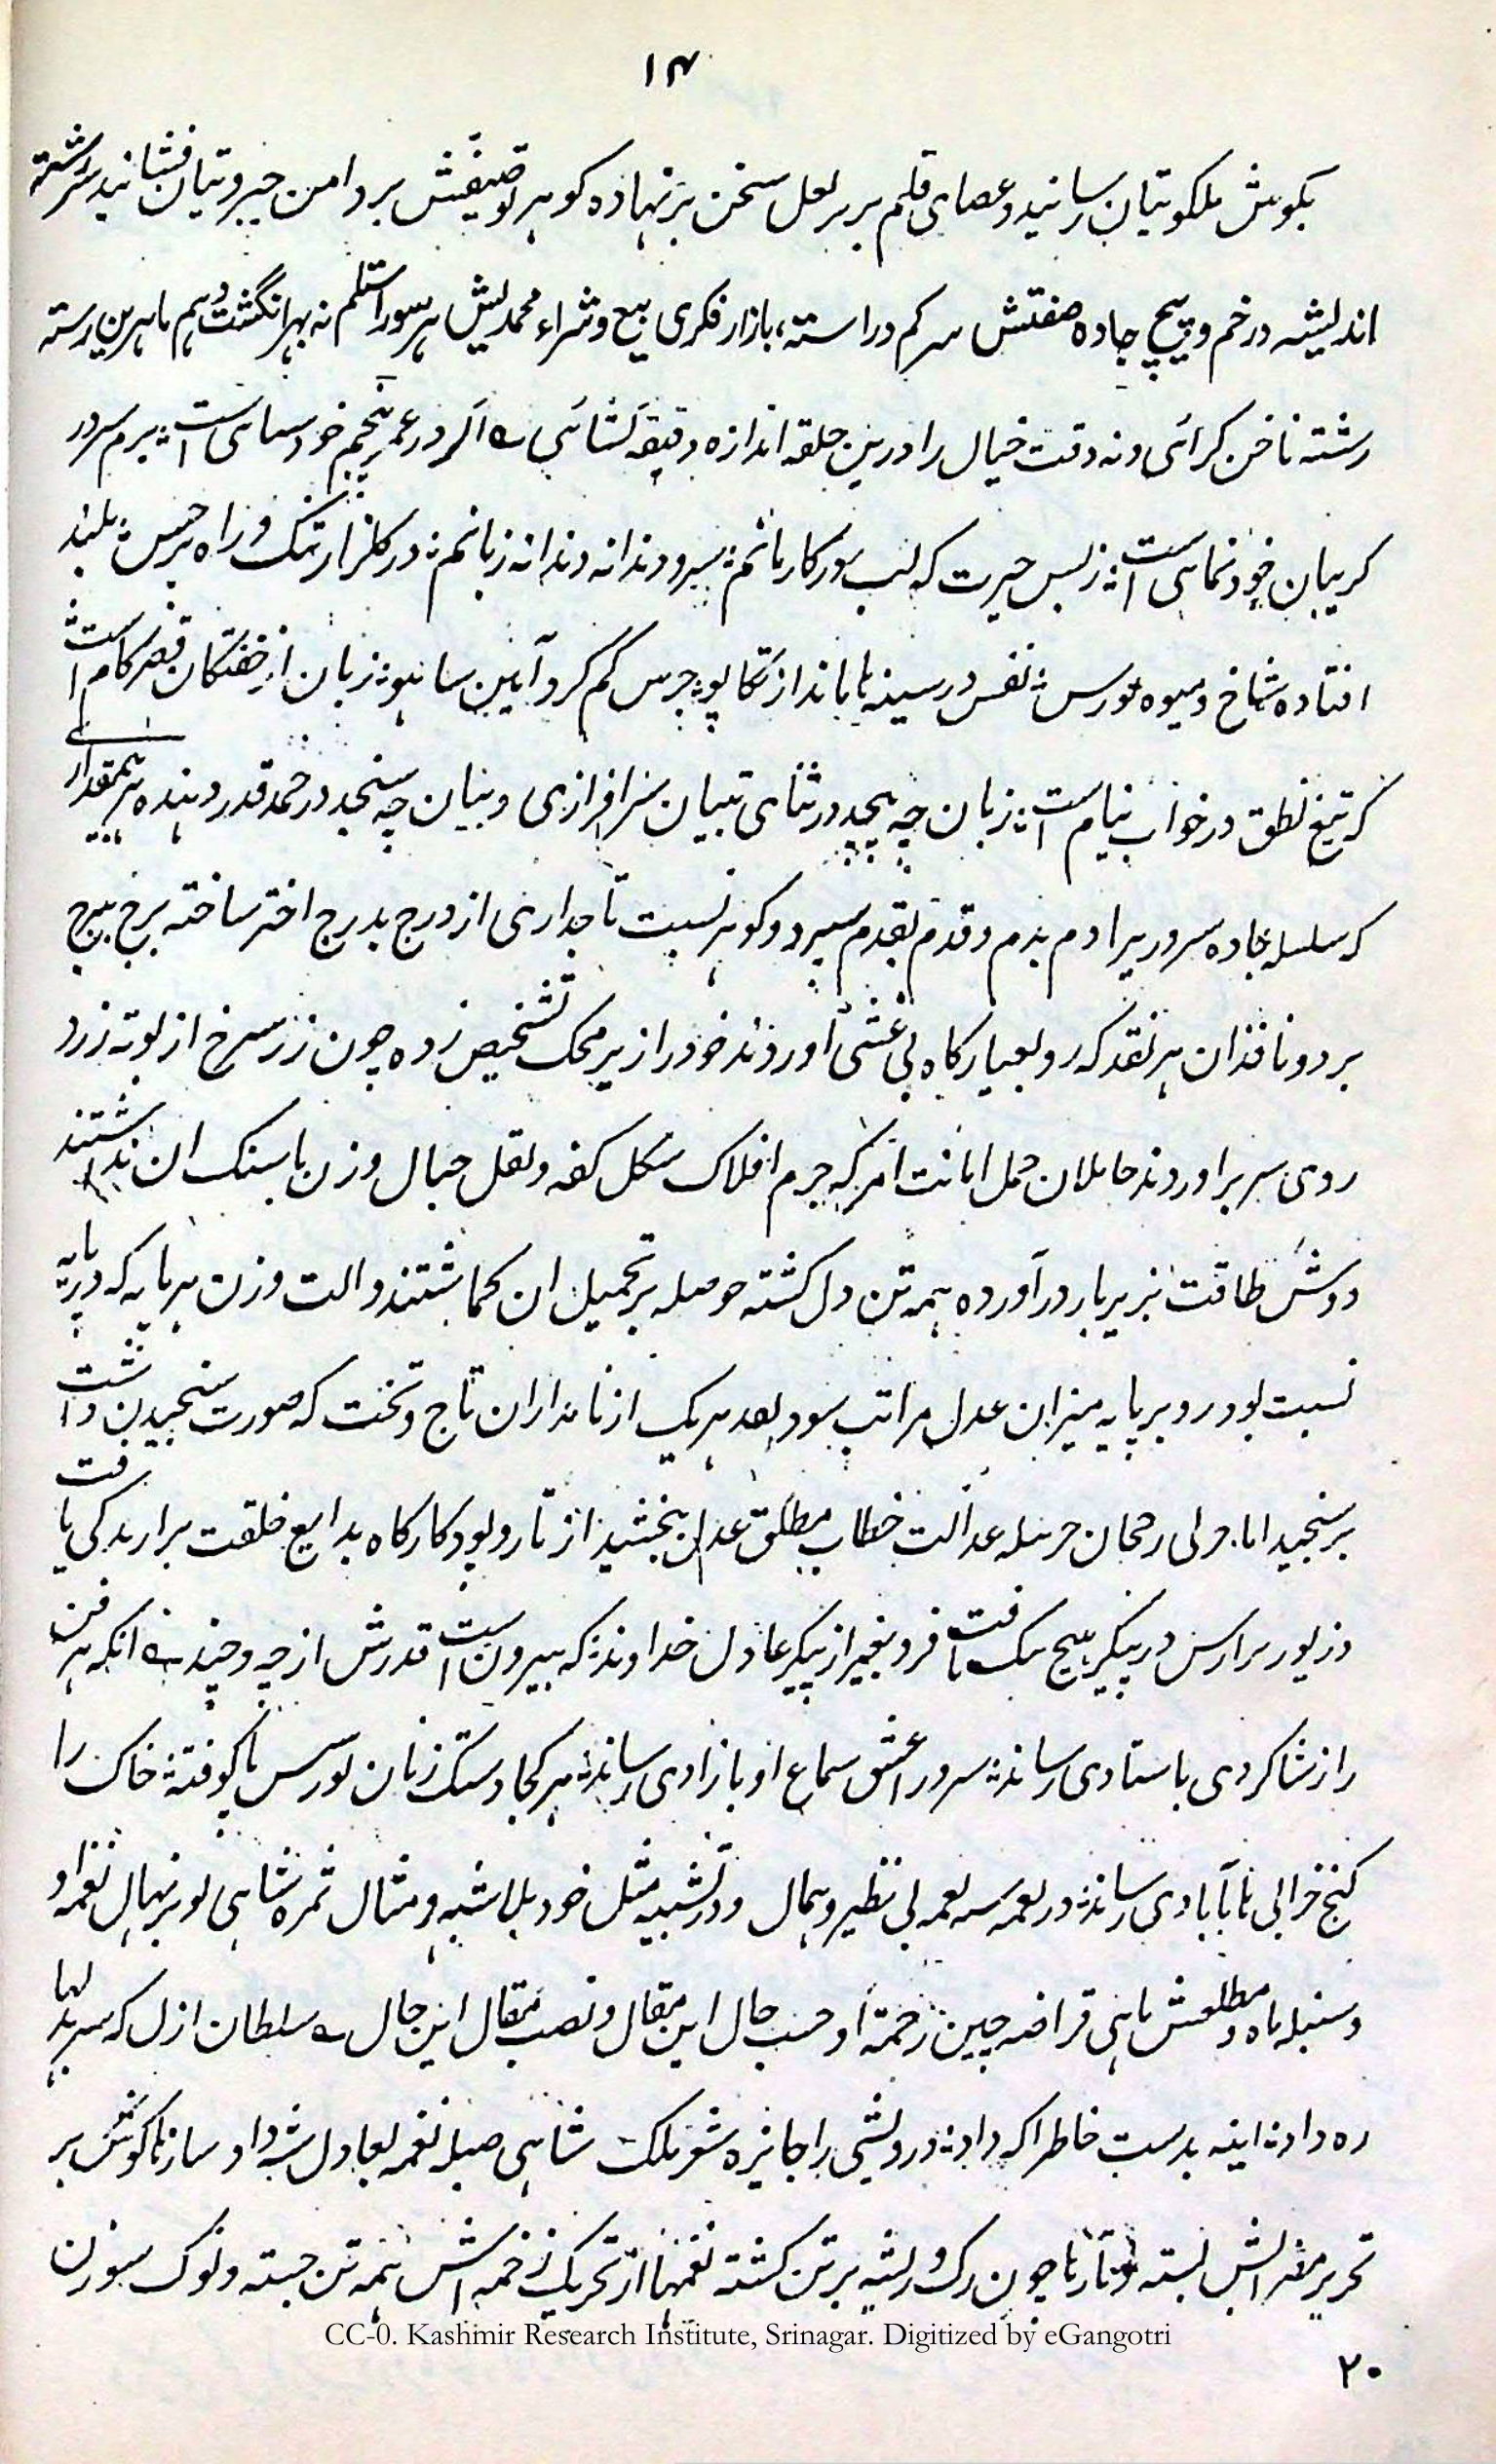 ۱۴
بکوش ملکوتیان رسانید و عصای قلم بر بر لعل سخن بر نهاده کوهر توصیفش بر دامن جبروتیان فشانید سررشته
اندیشه در خم و پیچ جاده صفتش سر کم در راسته بازار فکری بیع و شراء محمدیش هر سو را ستلم نه بهر انگشت وهم ماهرین رسته
رشته ناخن کرائی و نه دقت خیال را درین حلقه اندازه دقیقه کشائی اگر در عمر خود سمای است برم سرور
کریبان خود نمائی است ز بس حیرت که لب سور کار مانم سرو دندانه دندانه زبانم در کلزار تنک و راه پر خس بلند
افتاده شاخ و میوه نورس نفس در سینه با انداز تکاپو جرس کم کرد آیین سا هو زبان از خفتکان قصر کام است
که تیغ نطق در خواب نیام است زبان چه پیچد در ثنای تبیان سرافرازی و بیان چه سنجد در حمد قدر دهنده بیمقدار
که سلسله جاده سرور بر ادم بدم و قدم بقدم سپرد و کوهر نسبت تاجداری از درج بدرج اختر ساخته برج ببرج
برد و ناقدان هر نقد که رو بعیار کاه بی غشی آوردند خود را از بر محک تشخیص زده چون زر سرخ از بوته زرد
روی سر بر اوردند حاملان حمل امانت امر که جرم افلاک شکل کفه و نقل جبال وزن پاسنک ان نداشتند
دوش طاقت بزیر بار در آورده همه تن دل کشته حوصله بر تحمیل ان کماشتند و الت وزن هر پایه که در پایه
نسبت بود رو بر پایه میزان عدل مراتب سود بعد هر یک از نامداران تاج و تخت که صورت سنجیدن داشت
بر سنجید اما جولی رجحان حرسله عدالت خطاب مطلق عدل بخشید از تار و پود کارکاه بدایع خلقت برارندکی یافت
و زیور برارس در پیکر هیچ یک تافت فرد بغیر از پیکر عادل خداوند که بیرون است قدرش از چه و چند انکه هر فن
را از شاکردی باستادی رساند سرور عشق سماع او بازادی رساند هر کجا دستک زنان نورس پا کوفته خاک را
کنج خرابی تا بآبادی رساند در نعمه سه نعمه بی نظیر و همال و در تشبیه مثل خود بلا شبه و مثال ثمره شاهی نو بر نهال نغمه او
و سنبله ماه و مطلعش ماهی قراضه چین زحمة او حسب حال این مقال و نصب مقال این حال سلطان ازل که سر بدلها
ره داد اینه بدست خاطر اکه داد درویشی را جایزه شعر ملک شاهی صله نغمه بعادل شه داد سازها کوش بر
تحریر مضرابش بسته و تارها چون رک و ریشه بر تن کشته نغمها از تحریک زخمه اش همه تن جسته و نوک سوزن
CC-0. Kashmir Research Institute, Srinagar. Digitized by eGangotri
۲۰